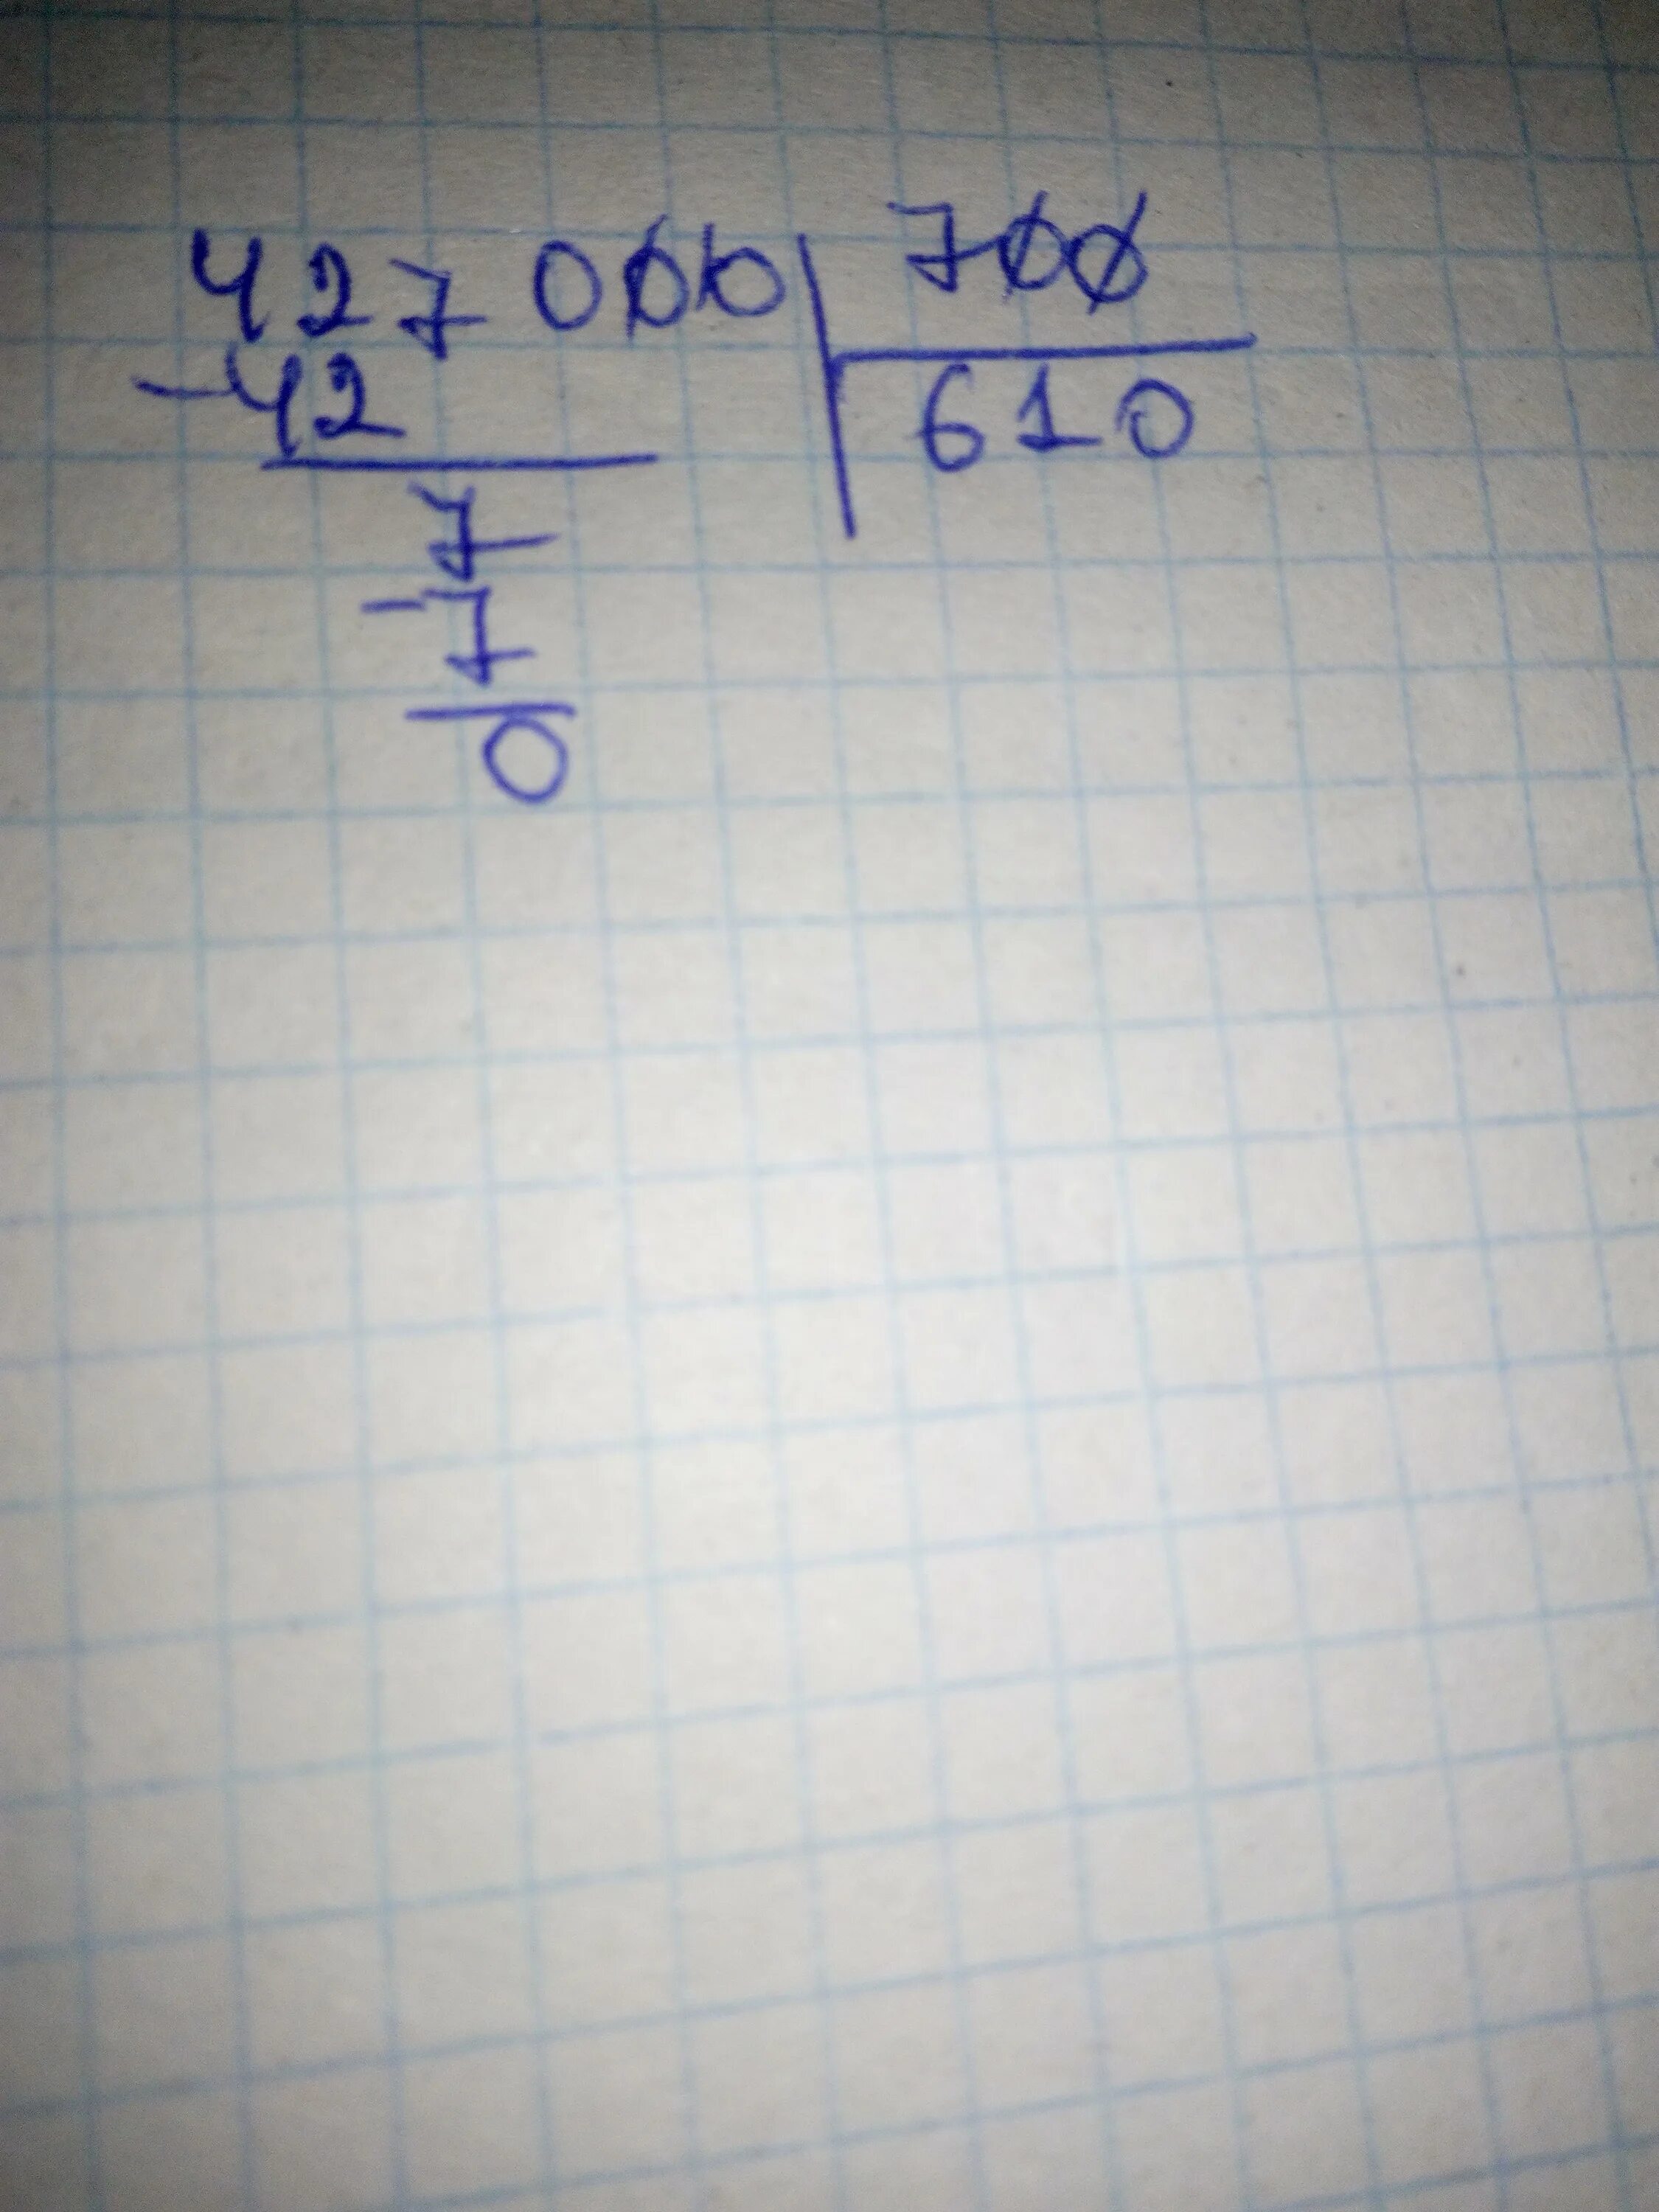 427 000 700
-42 610
7
-7
0